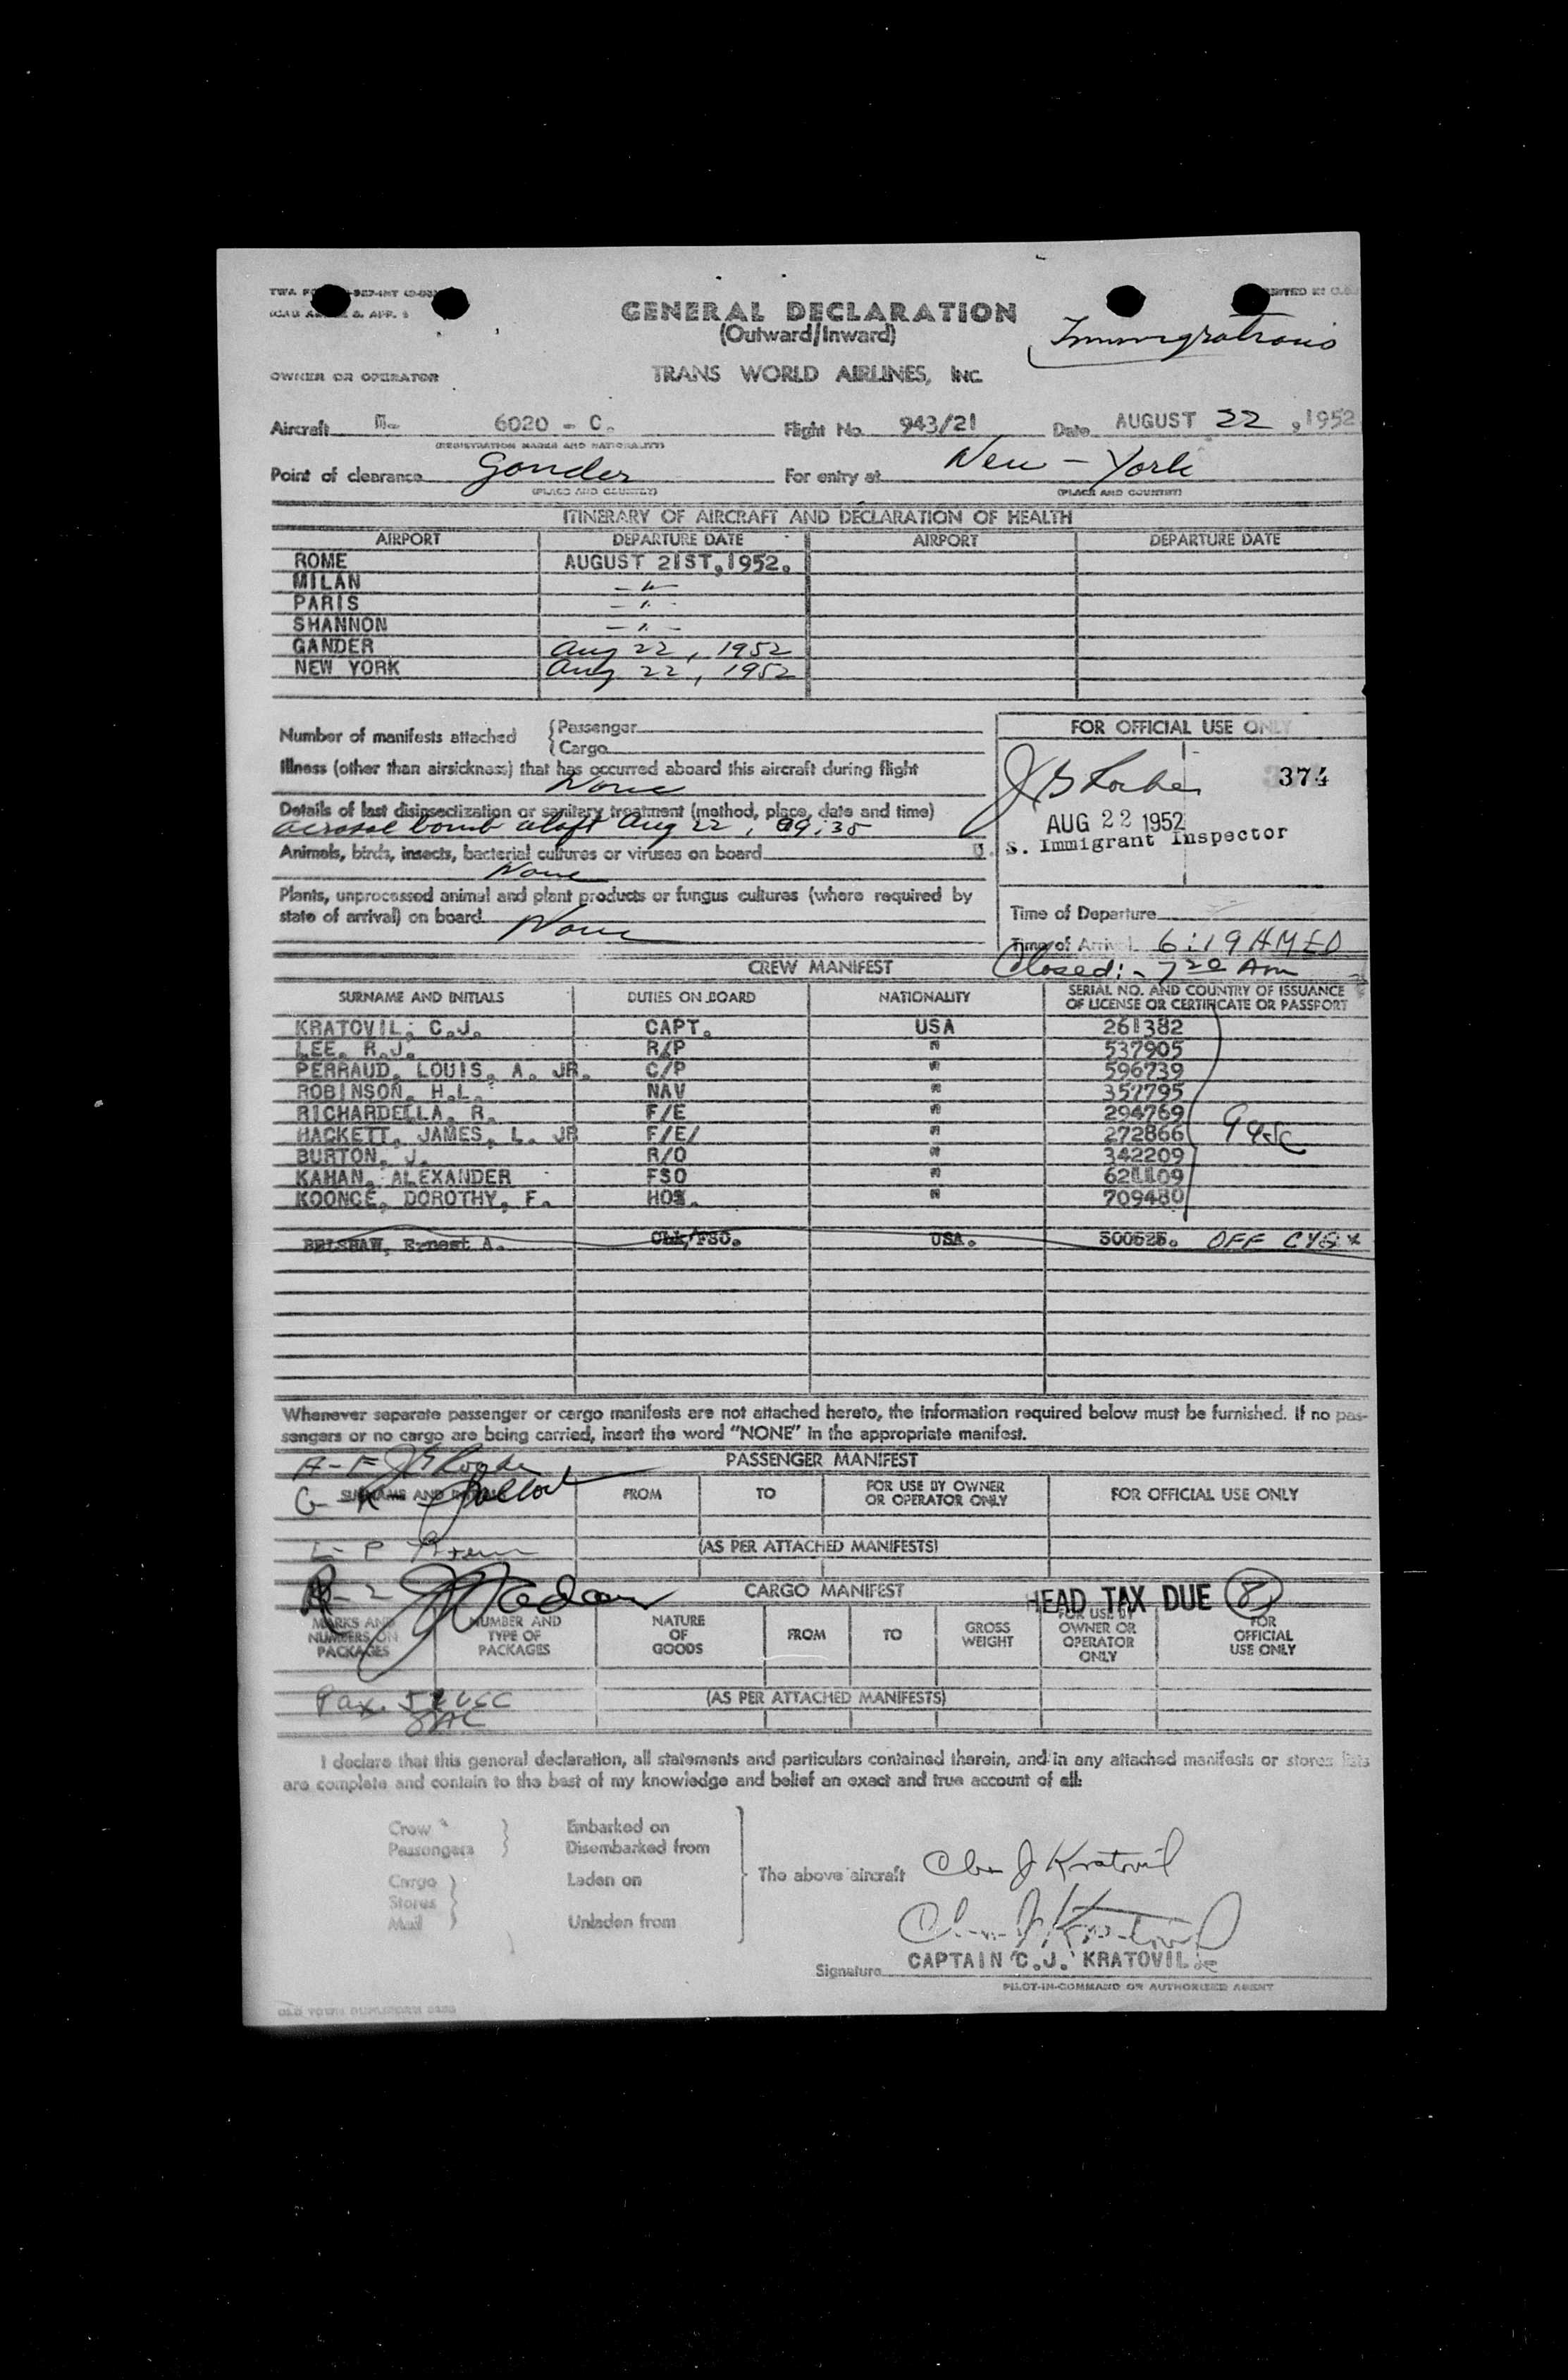 GENERAL DECLARATION
(Outward/Inward)
Immigrations
OWNER OR OPERATOR TRANS WORLD AIRLINES, INC.
Aircraft 6020 - C. Flight No. 943/21 Date AUGUST 22, 1952
(REGISTRATION MARKS AND NATIONALITY)
Point of clearance Gander For entry at New - York
(PLACE AND COUNTRY) (PLACE AND COUNTRY)
ITINERARY OF AIRCRAFT AND DECLARATION OF HEALTH
AIRPORT DEPARTURE DATE AIRPORT DEPARTURE DATE
ROME AUGUST 21ST, 1952.
MILAN - " -
PARIS - " -
SHANNON - " -
GANDER Aug 22, 1952
NEW YORK Aug 22, 1952
Number of manifests attached { Passenger
{ Cargo
Illness (other than airsickness) that has occurred aboard this aircraft during flight
None
Details of last disinsectization or sanitary treatment (method, place, date and time)
aerosol bomb aloft Aug 22, 09:35
Animals, birds, insects, bacterial cultures or viruses on board
None
Plants, unprocessed animal and plant products or fungus cultures (where required by
state of arrival) on board None
FOR OFFICIAL USE ONLY
374
AUG 22 1952
U. S. Immigrant Inspector
Time of Departure
Time of Arrival 6:19 AM ED
Closed:- 7 20 Am
CREW MANIFEST
SURNAME AND INITIALS DUTIES ON BOARD NATIONALITY SERIAL NO. AND COUNTRY OF ISSUANCE OF LICENSE OR CERTIFICATE OR PASSPORT
KRATOVIL, C.J. CAPT. USA 261382
LEE, R.J. R/P " 537905
PERRAUD, LOUIS, A. JR. C/P " 596739
ROBINSON, H.L. NAV " 357795
RICHARDELLA, R. F/E " 294769
HACKETT, JAMES, L. JR F/E/ " 272866 9 usc
BURTON, J. R/O " 342209
KAHAN, ALEXANDER FSO " 621109
KOONCE, DOROTHY, F. HOS. " 709480
BELSHAW, Ernest A. Chk/FSO. USA. 500525. OFF CYQX
Whenever separate passenger or cargo manifests are not attached hereto, the information required below must be furnished. If no pas-
sengers or no cargo are being carried, insert the word "NONE" in the appropriate manifest.
A - F PASSENGER MANIFEST
G - K
SURNAME AND INITIALS FROM TO FOR USE BY OWNER OR OPERATOR ONLY FOR OFFICIAL USE ONLY
L - P (AS PER ATTACHED MANIFESTS)
CARGO MANIFEST HEAD TAX DUE 8
MARKS AND NUMBERS ON PACKAGES NUMBER AND TYPE OF PACKAGES NATURE OF GOODS FROM TO GROSS WEIGHT FOR USE BY OWNER OR OPERATOR ONLY FOR OFFICIAL USE ONLY
Pax. (AS PER ATTACHED MANIFESTS)
I declare that this general declaration, all statements and particulars contained therein, and in any attached manifests or stores lists
are complete and contain to the best of my knowledge and belief an exact and true account of all:
Crew Embarked on
Passengers Disembarked from
Cargo Laden on The above aircraft Chas J Kratovil
Stores
Mail Unladen from
Chas J. Kratovil
Signature CAPTAIN C.J. KRATOVIL
PILOT-IN-COMMAND OR AUTHORIZED AGENT